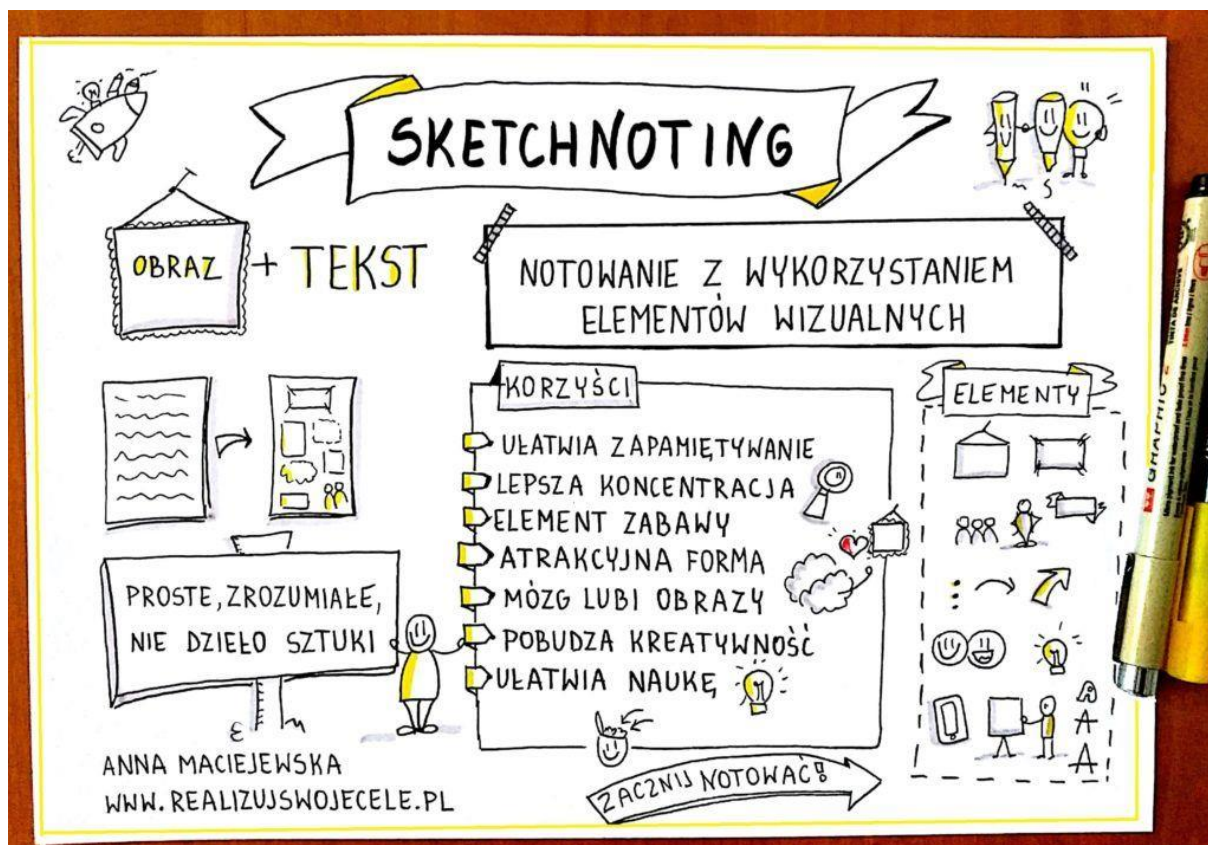 SKETCHNOTING
OBRAZ + TEKST
NOTOWANIE Z WYKORZYSTANIEM
ELEMENTÓW WIZUALNYCH
KORZYŚCI
UŁATWIA ZAPAMIĘTYWANIE
LEPSZA KONCENTRACJA
ELEMENT ZABAWY
ATRAKCYJNA FORMA
MÓZG LUBI OBRAZY
POBUDZA KREATYWNOŚĆ
UŁATWIA NAUKĘ
ELEMENTY
A
A
A
A
PROSTE, ZROZUMIAŁE,
NIE DZIEŁO SZTUKI
ANNA MACIEJEWSKA
WWW.REALIZUJSWOJECELE.PL
ZACZNIJ NOTOWAĆ!
GRAPHIC